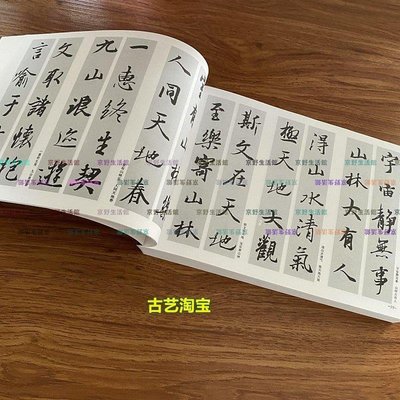 宇宙静無事
山林大有人
得山水清氣
極天地大觀
斯文在天地
至樂寄山林
人同天地春
一惠終生契
九山浪迹遊
文取諸懷抱
言喻于
京野生活館
古艺淘宝